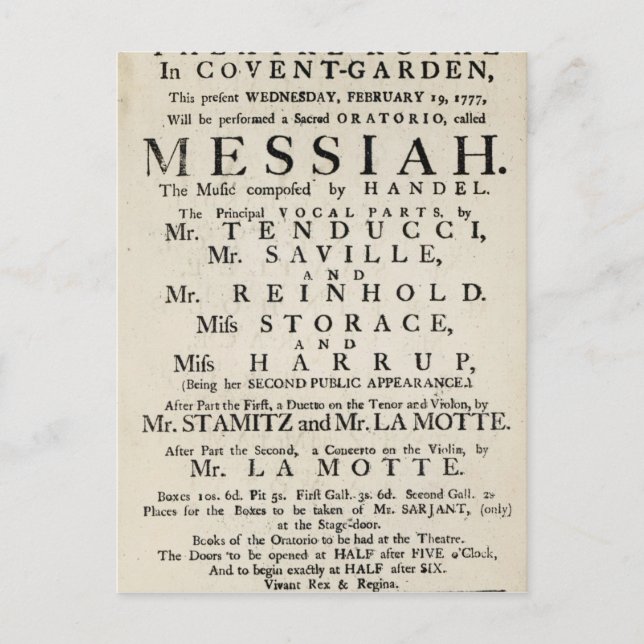 THEATRE ROYAL
In COVENT-GARDEN,
This preſent WEDNESDAY, FEBRUARY 19, 1777,
Will be performed a Sacred ORATORIO, called
MESSIAH.
The Muſic compoſed by HANDEL.
The Principal VOCAL PARTS, by
Mr. TENDUCCI,
Mr. SAVILLE,
AND
Mr. REINHOLD.
Miſs STORACE,
AND
Miſs HARRUP,
(Being her SECOND PUBLIC APPEARANCE.)
After Part the Firſt, a Duetto on the Tenor and Violon, by
Mr. STAMITZ and Mr. LA MOTTE.
After Part the Second, a Concerto on the Violin, by
Mr. LA MOTTE.
Boxes 10s. 6d. Pit 5s. Firſt Gall. 3s. 6d. Second Gall. 2s
Places for the Boxes to be taken of Mr. SARJANT, (only)
at the Stage-door.
Books of the Oratorio to be had at the Theatre.
The Doors to be opened at HALF after FIVE o'Clock,
And to begin exactly at HALF after SIX.
Vivant Rex & Regina.